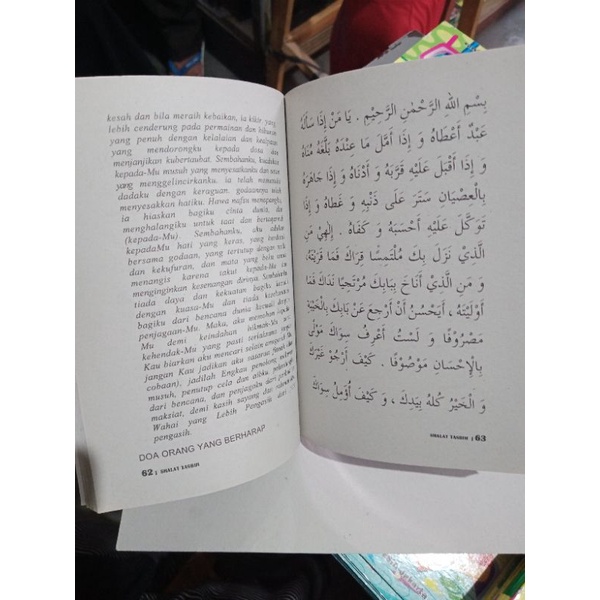 kesah dan bila meraih kebaikan, ia kikir yang
lebih cenderung pada permainan dan hiburan
yang penuh dengan kelalaian dan kealpaan
yang mendorongku kepada dosa dan
menjanjikan kubertaubat. Sembahanku, kuadukan
kepada-Mu musuh yang menyesatkanku dan setan
yang menggelincirkanku. ia telah memenuhi
dadaku dengan keraguan. godaannya telah
menyesakkan hatiku. Hawa nafsu menopangku,
ia hiaskan bagiku cinta dunia, dan
menghalangiku untuk taat dan bertaqarrub
(kepada-Mu). Sembahanku, aku adukan
kepadaMu hati yang keras, yang berbolak
bersama godaan, yang tertutup dengan noda
dan kekufuran, dan mata yang beku untuk
menangis karena takut kepada-Mu tetapi
menginginkan kesenangan dirinya. Sembahanku,
tiada daya dan kekuatan bagiku kecuali
dengan kuasa-Mu dan tiada keselamatan
bagiku dari bencana dunia kecuali dengan
penjagaan-Mu. Maka, aku memohon kepada-
Mu demi keindahan hikmah-Mu dan
kehendak-Mu yang pasti terlaksana, jangan
Kau biarkan aku mencari selain
jangan Kau jadikan aku sasaran
cobaan), jadilah Engkau penolong
musuh, penutup cela dan aibku,
dari bencana, dan penjagaku dari
maksiat, demi kasih sayang dan
Wahai yang Lebih Pengasih dari
pengasih.
DOA ORANG YANG BERHARAP
62 : SHALAT TASBIH
بِسْمِ اللهِ الرَّحْمٰنِ الرَّحِيْمِ . يَا مَنْ إِذَا سَأَلَهُ
عَبْدٌ أَعْطَاهُ وَ إِذَا أَمَّلَ مَا عِنْدَهُ بَلَّغَهُ مُنَاهُ
وَ إِذَا أَقْبَلَ عَلَيْهِ قَرَّبَهُ وَ أَدْنَاهُ وَ إِذَا جَاهَرَهُ
بِالْعِصْيَانِ سَتَرَ عَلَى ذَنْبِهِ وَ غَطَاهُ وَ إِذَا
تَوَكَّلَ عَلَيْهِ أَحْسَبَهُ وَ كَفَاهُ . إِلٰهِيْ مَنِ
الَّذِيْ نَزَلَ بِكَ مُلْتَمِسًا قِرَاكَ فَمَا قَرَيْتَهُ،
وَ مَنِ الَّذِيْ أَنَاخَ بِبَابِكَ مُرْتَجِيًا نَدَاكَ فَمَا
أَوْلَيْتَهُ ، أَيَحْسُنُ أَنْ أَرْجِعَ عَنْ بَابِكَ بِالْخَيْبَةِ
مَصْرُوْفًا وَ لَسْتُ أَعْرِفُ سِوَاكَ مَوْلًى
بِالْإِحْسَانِ مَوْصُوْفًا . كَيْفَ أَرْجُوْ غَيْرَكَ
وَ الْخَيْرُ كُلُّهُ بِيَدِكَ ، وَ كَيْفَ أُؤَمِّلُ سِوَاكَ
SHALAT TASBIH : 63